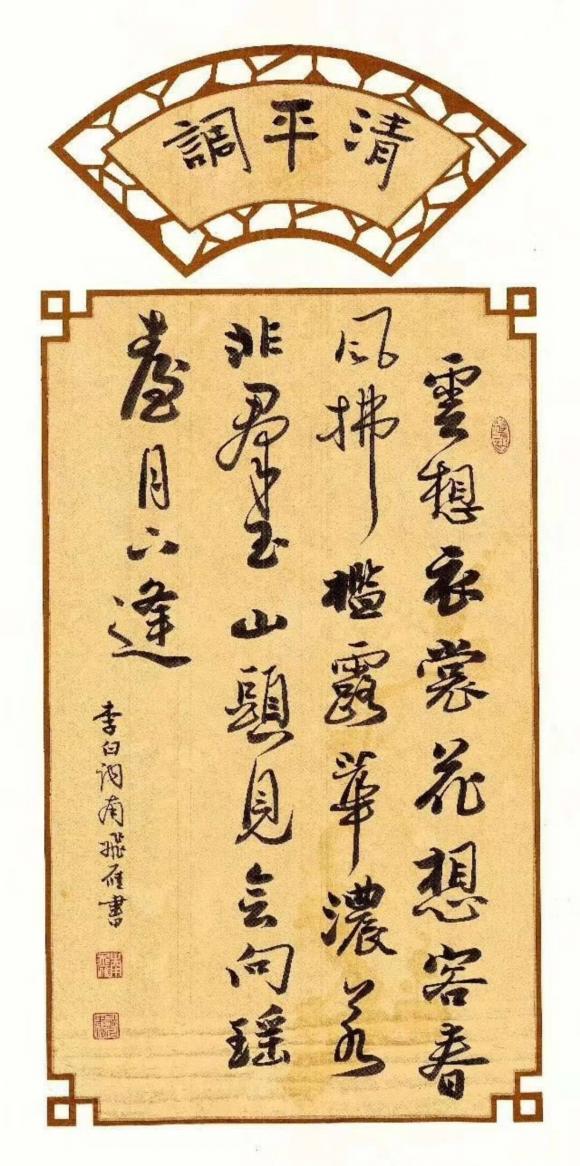 清平調
雲想衣裳花想容春
風拂檻露華濃若
非羣玉山頭見会向瑶
臺月下逢
李白詞南飛雁書